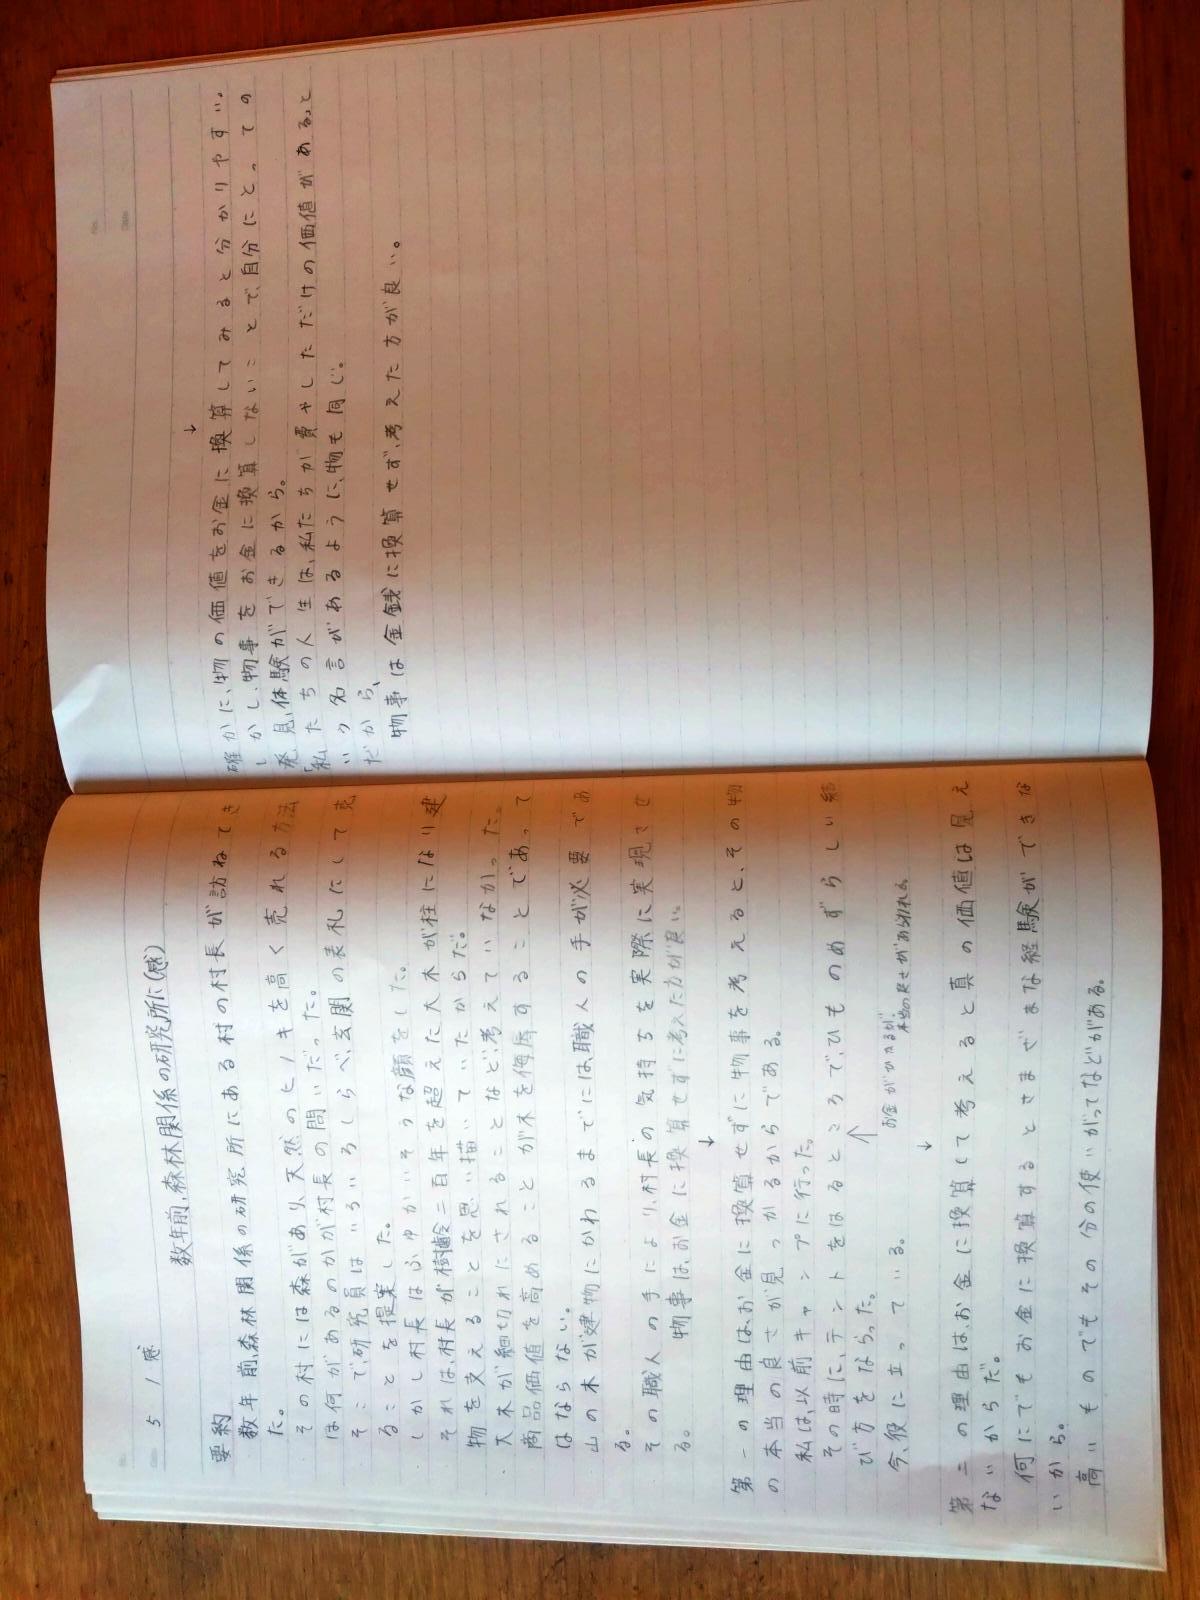 5 1 感
数年前、森林関係の研究所に(感)
要約
数年前、森林関係の研究所にある村の村長が訪ねてき
た。
その村には森があり、天然のヒノキを高く売れる方法
は何があるのかが村長の問いだった。
そこで、研究員はいろいろしらべ、玄関の表札にして売
ることを提案した。
しかし村長はふゆかいそうな顔をした。
それは、村長が樹齢二百年を超えた大木が柱になり建
物を支えることを思い描いていたからだ。
大木が細切れにされることなど、考えていなかった。
商品価値を高めることが木を侮辱することであって
はならない。
山の木が建物にかわるまでには、職人の手が必要であ
る。
その職人の手により、村長の気持ちを実際に実現させ
る。
物事は、お金に換算せずに考えた方が良い。
↓
第一の理由は、お金に換算せずに物事を考えると、その物
の本当の良さが見つかるからである。
私は、以前キャンプに行った。
その時に、テントをはるところで、ひものめずらしい結
び方をならった。
今、役に立っている。
↑
お金がかかるが、
本当の良さがあらわれる。
↓
第二の理由は、お金に換算して考えると真の価値は見え
ないからだ。
何にでもお金に換算するとさまざまな経験ができな
いから。
高いものでもその分の使いがってなどがある。
↓
確かに、物の価値をお金に換算してみると分かりやすい。
しかし、物事をお金に換算しないことで、自分にとっての
発見、体験ができるから。
「私たちの人生は、私たちが費やしただけの価値がある」と
いう名言があるように、物も同じ。
だから、
物事は金銭に換算せず、考えた方が良い。